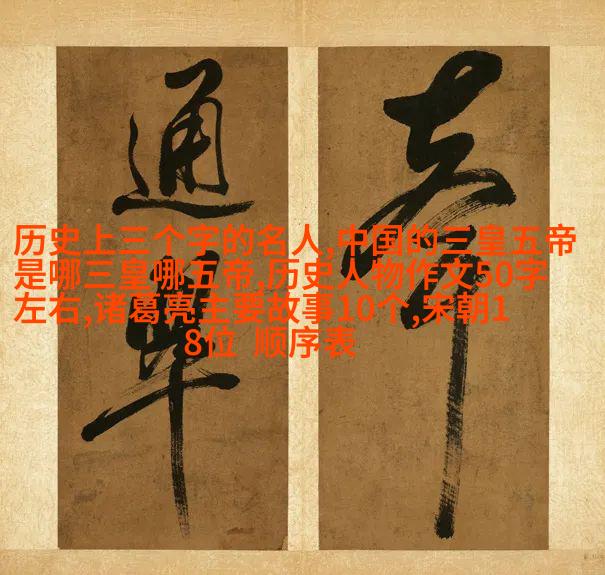 历史上三个字的名人,中国的三皇五帝
是哪三皇哪五帝,历史人物作文50字
左右,诸葛亮主要故事10个,宋朝1
8位 顺序表
通